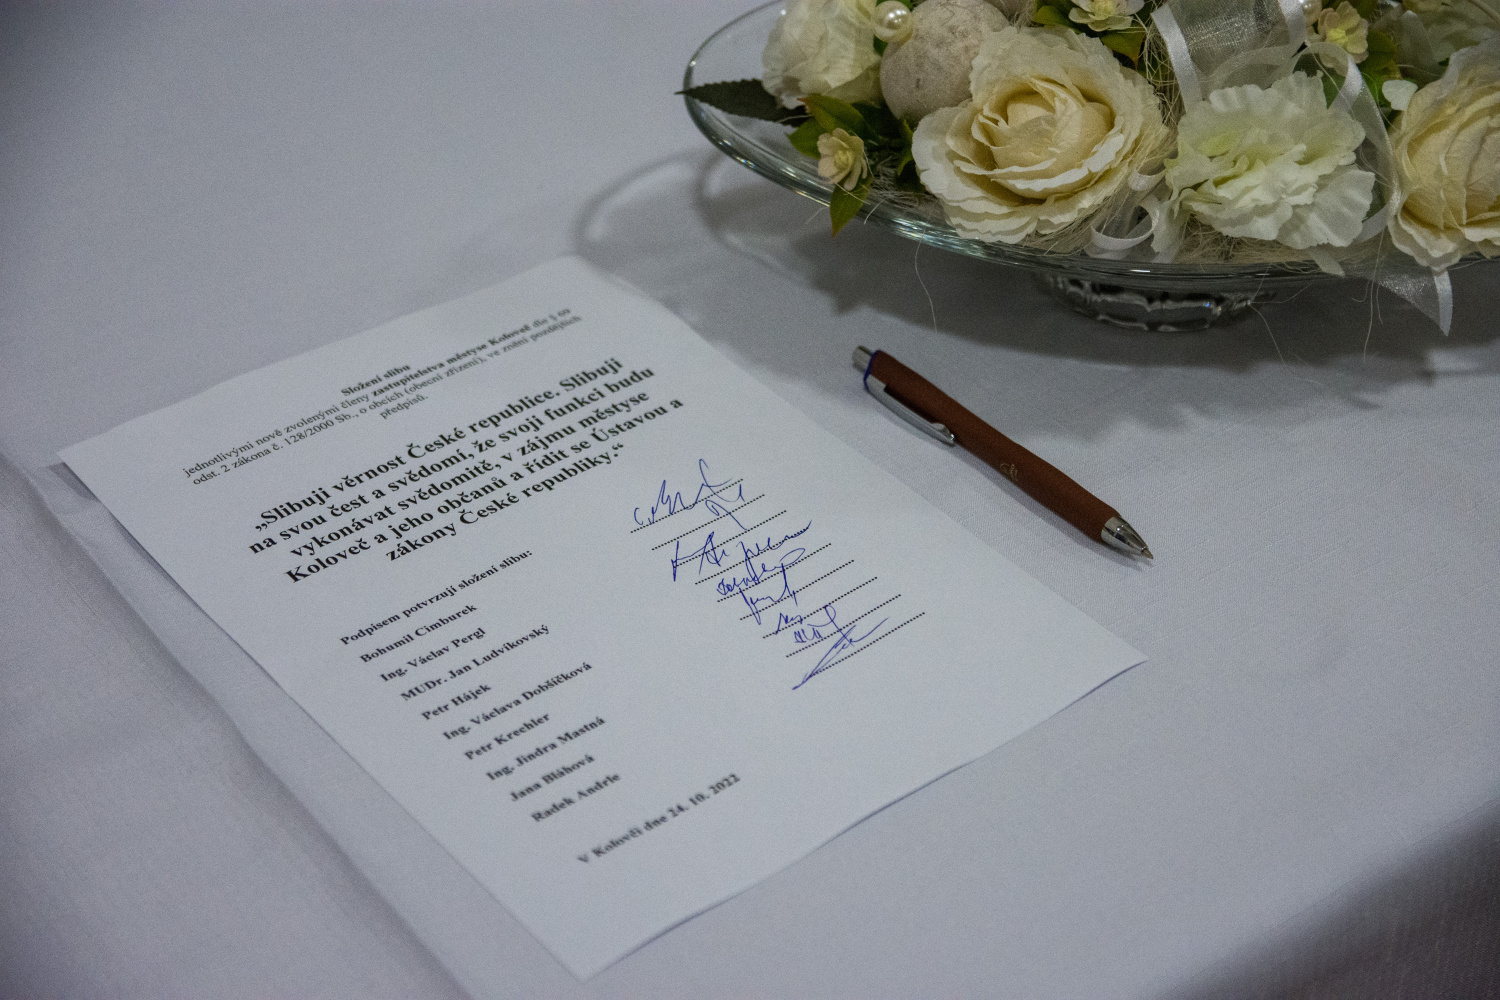 Složení slibu
jednotlivými nově zvolenými členy zastupitelstva městyse Koloveč dle § 69
odst. 2 zákona č. 128/2000 Sb., o obcích (obecní zřízení), ve znění pozdějších
předpisů.
„Slibuji věrnost České republice. Slibuji
na svou čest a svědomí, že svoji funkci budu
vykonávat svědomitě, v zájmu městyse
Koloveč a jeho občanů a řídit se Ústavou a
zákony České republiky.“
Podpisem potvrzují složení slibu:
Bohumil Cimburek
Ing. Václav Pergl
MUDr. Jan Ludvikovský
Petr Hájek
Ing. Václava Dobšíčková
Petr Krechler
Ing. Jindra Mastná
Jana Bláhová
Radek Andrle
V Kolovči dne 24. 10. 2022